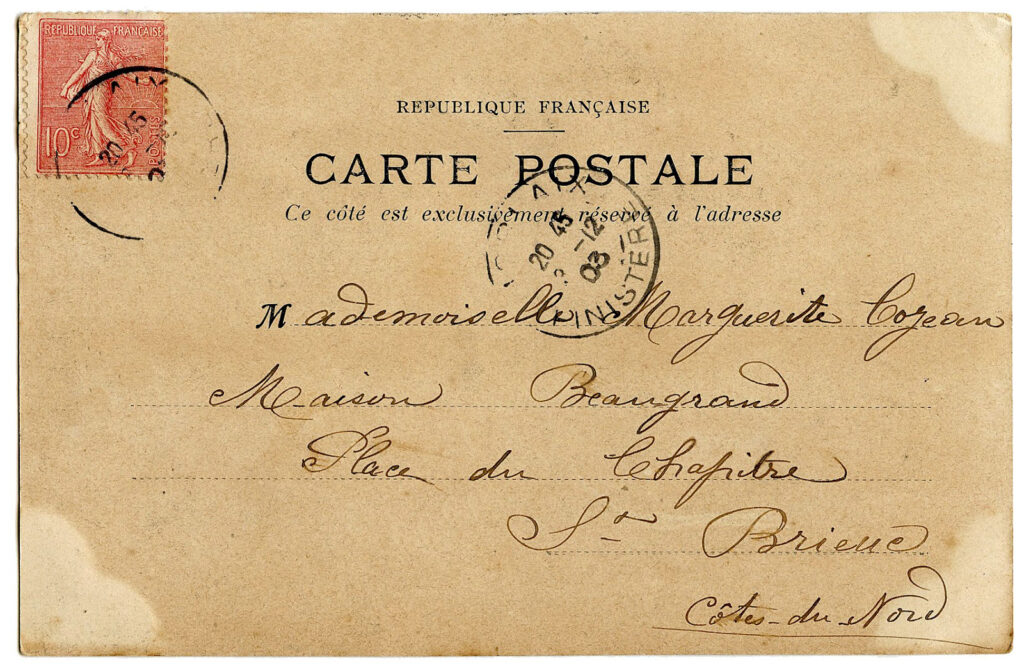 REPUBLIQUE FRANÇAISE
10c
POSTES
20 45
REPUBLIQUE FRANÇAISE
CARTE POSTALE
Ce côté est exclusivement réservé à l'adresse
20 45
-12
03
FINISTERE
Mademoiselle Marguerite Cozean
Maison Beaugrand
Place du Chapitre
St Brieuc
Côtes-du-Nord